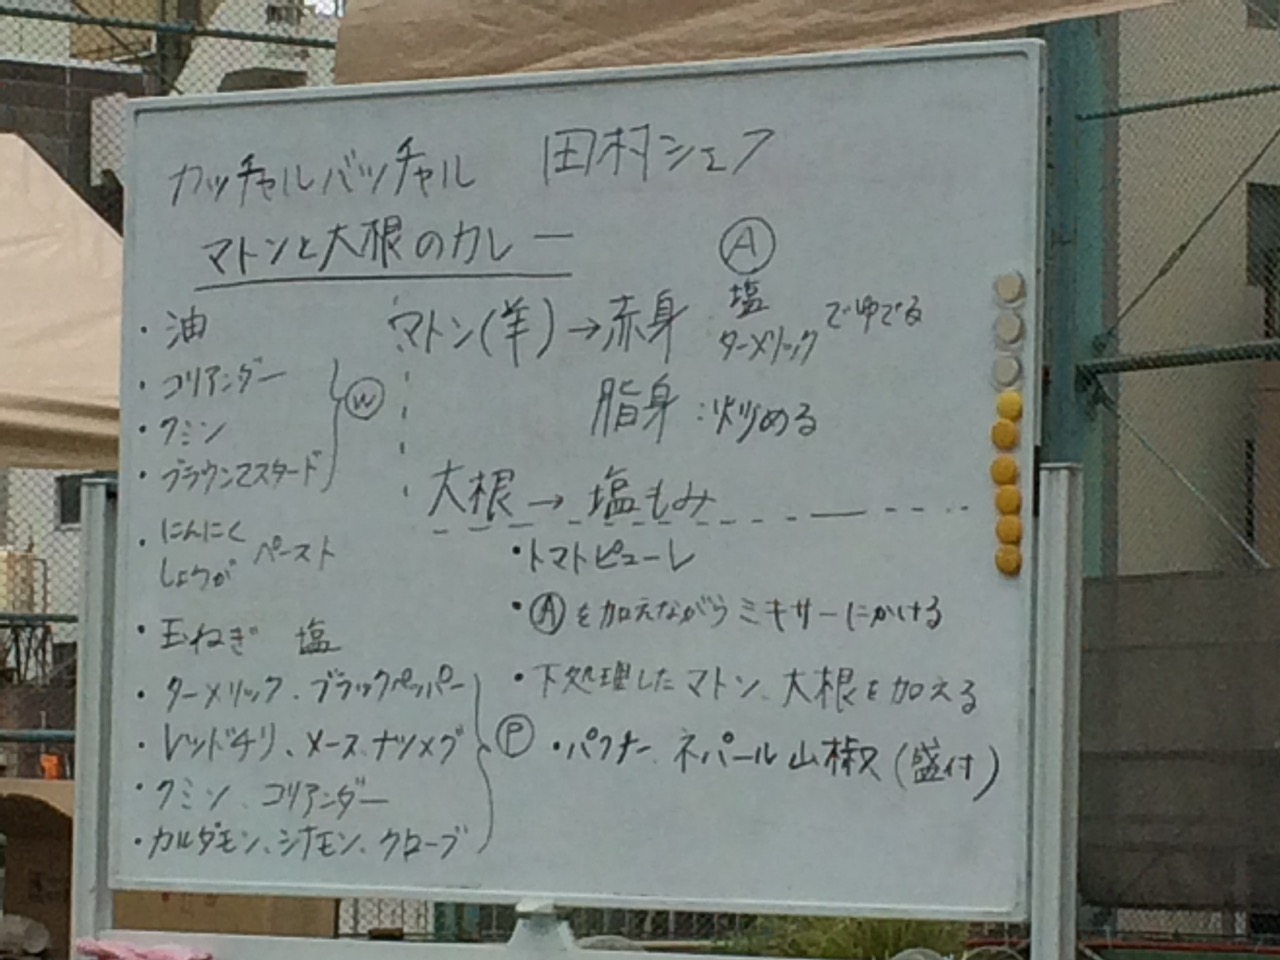 カッチャルバッチャル 田村シェフ
マトンと大根のカレー
・油
・コリアンダー
・クミン
・ブラウンマスタード
Ⓦ
・にんにく
しょうが
ペースト
・玉ねぎ 塩
・ターメリック、ブラックペッパー
・レッドチリ、メース、ナツメグ
・クミン、コリアンダー
・カルダモン、シナモン、クローブ
Ⓟ
マトン(羊)→赤身
Ⓐ
塩
ターメリック
でゆでる
脂身:炒める
大根→塩もみ
・トマトピューレ
・Ⓐを加えながらミキサーにかける
・下処理したマトン、大根を加える
・パクチー、ネパール山椒(盛付)